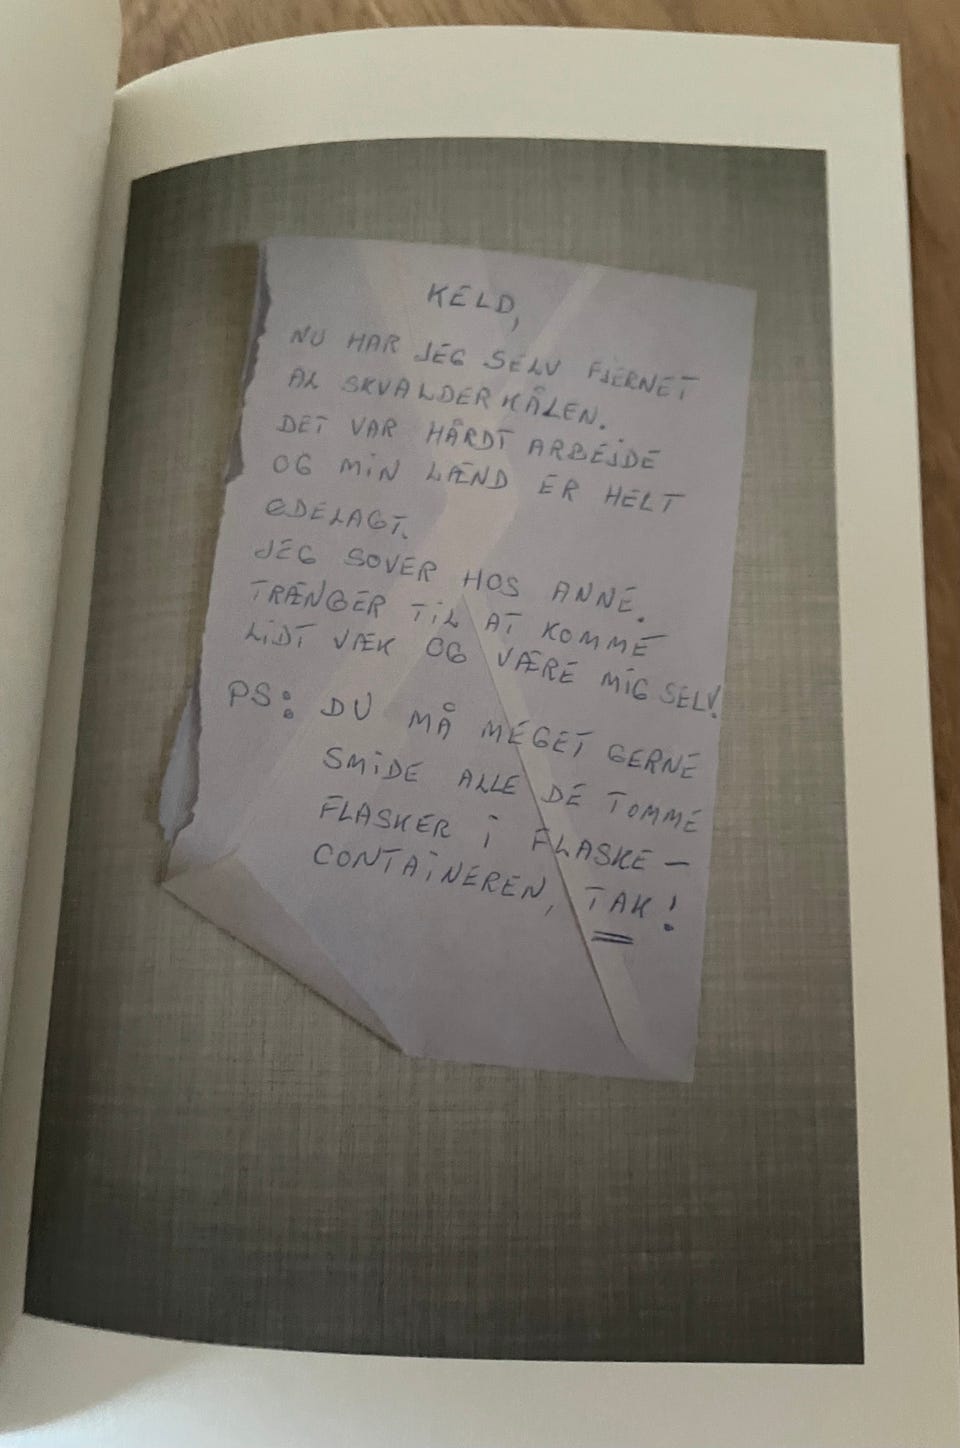 KELD,
NU HAR JEG SELV FJERNET
AL SKVALDERKÅLEN.
DET VAR HÅRDT ARBEJDE
OG MIN LÆND ER HELT
ØDELAGT.
JEG SOVER HOS ANNE.
TRÆNGER TIL AT KOMME
LIDT VÆK OG VÆRE MIG SELV!
PS: DU MÅ MEGET GERNE
SMIDE ALLE DE TOMME
FLASKER I FLASKE-
CONTAINEREN, TAK!